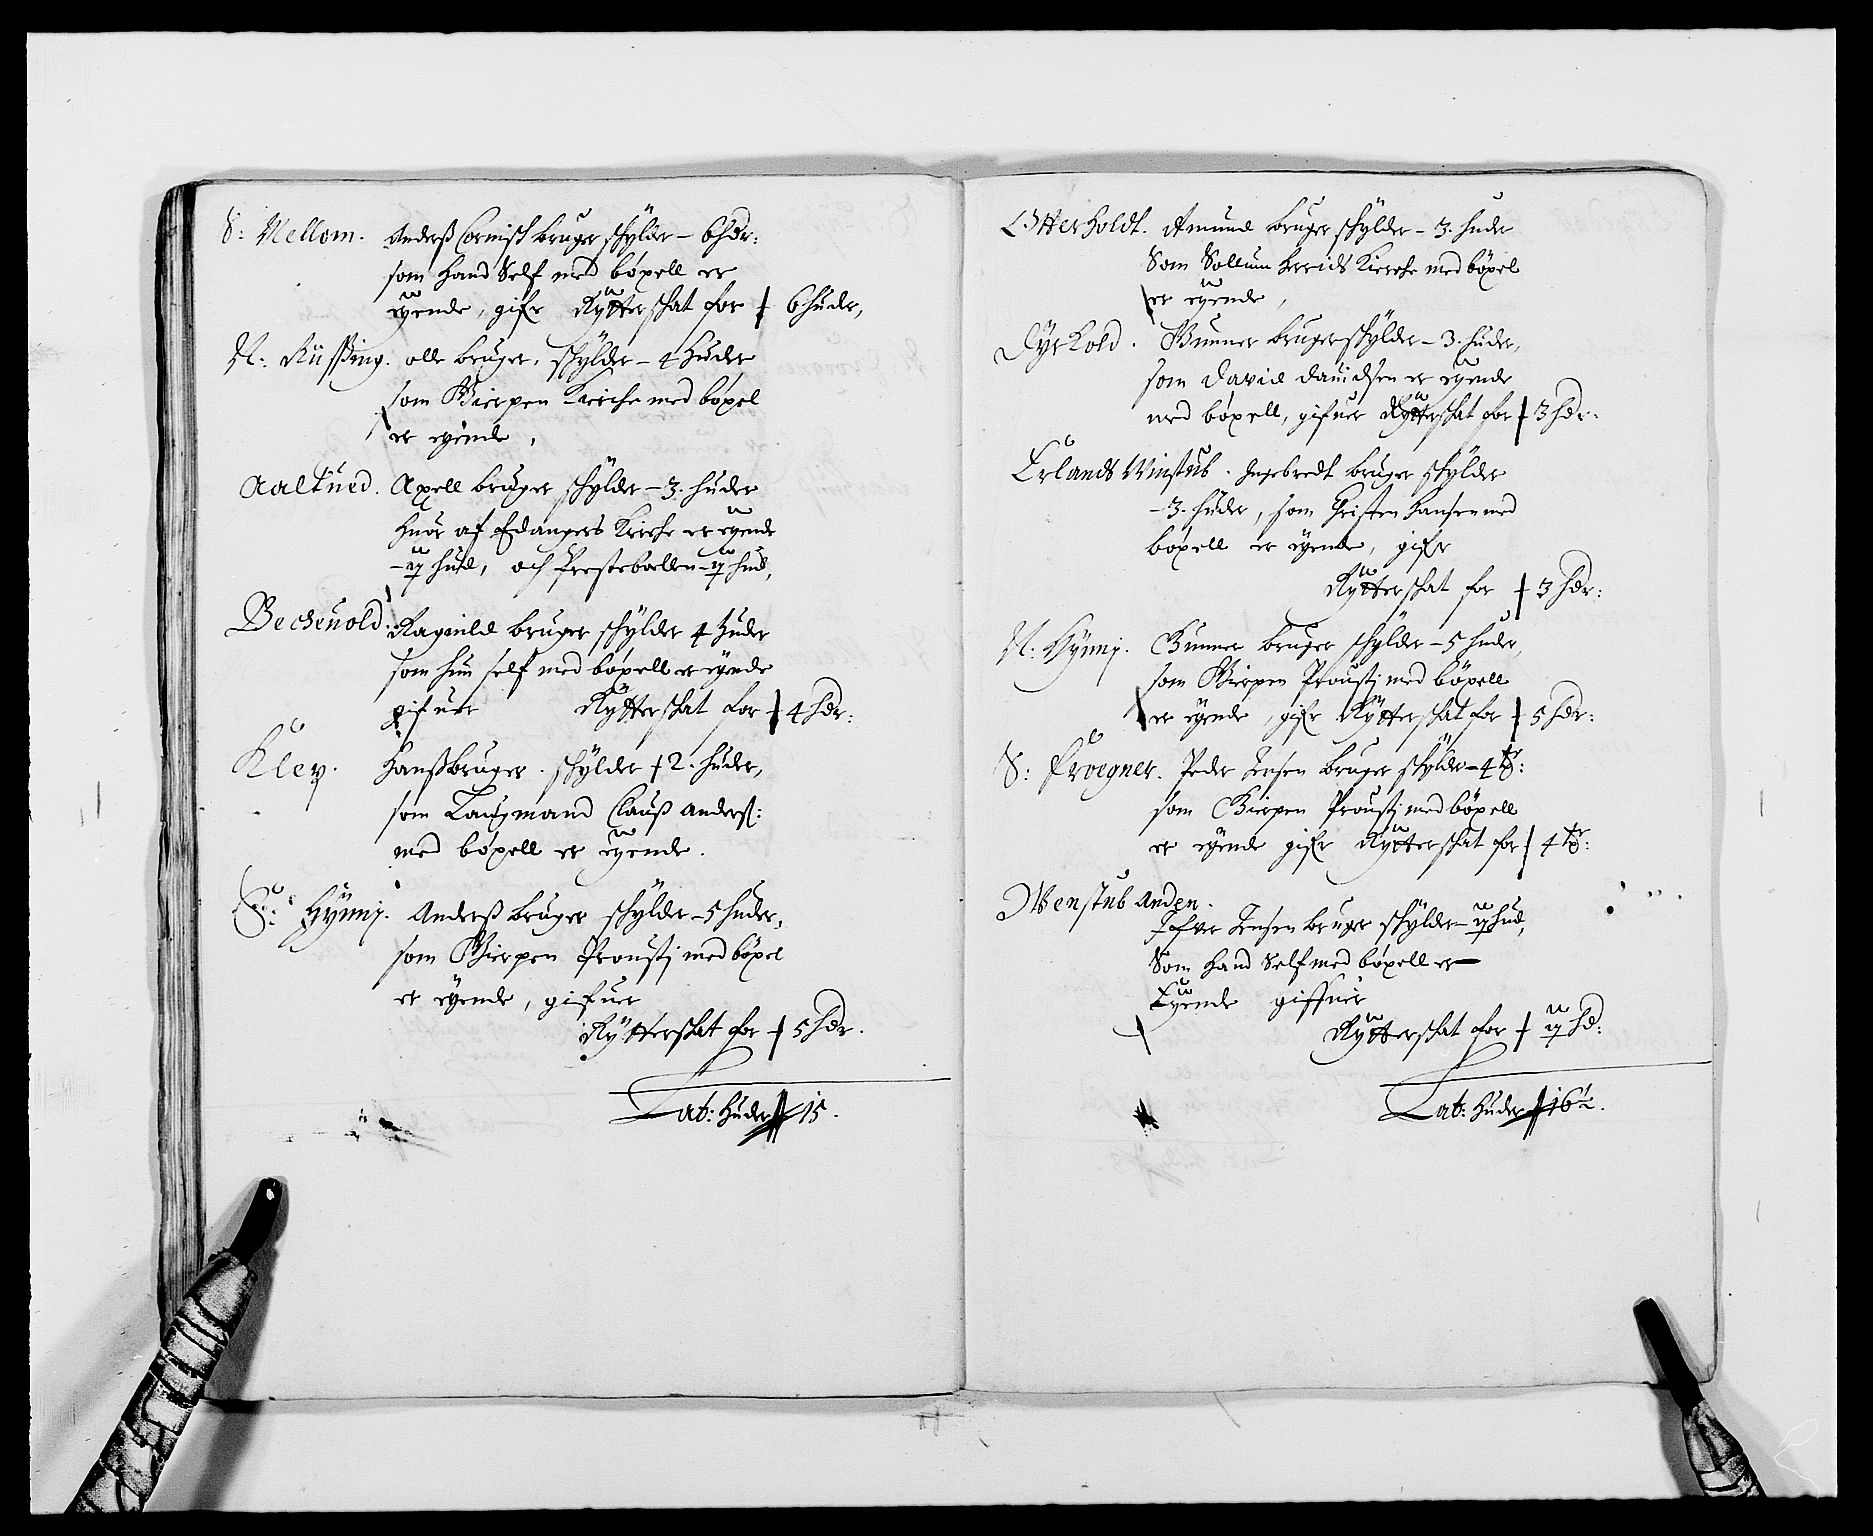 S: Mellom. Anderß Cornisk bruger schylder – 6 hdr:
som hand Self med böxell er
eyende, gifr Rytterskat for 6 huder,
N: Rüssing. olle bruger, schylder – 4 huder
som Gierpen Kirche med böxel
er eyende,
Aaltued. Axell bruger schylder – 3. huder
huor af Edangers Kirche er eyende
– ½ hud, och Prestebollen – ½ hud,
Becheuold. Ragnild bruger schylder 4 huder
som hun self med böxell er eyende
gifuer Rytterskat for 4 hdr:
Kley. Hanß bruger. schylder 2. huder,
som Laugmand Clauß Anderß:
med böxell er eyende.
S: Hynnj. Anderß bruger schylder – 5 huder,
som Gierpen Proustj med böxel
er eyende, gifuer
Rytterskat for 5 hdr.
Lat: huder 15.
Otterholdt. Amund bruger schylder – 3. huder
Som Sollum herrids Kierche med böxel
er eyende,
Dyrkold. Gunner bruger schylder – 3. huder,
som David Dauidsen er eyende
med böxell, gifuer Rytterskat for 3 hdr:
Erlands Winstub. Ingebredt bruger schylder
– 3. huder, som Christen Hansen med
böxell er eyende, gifr
Rytterskat for 3 hdr:
N: Hynnj. Gunner bruger schylder – 5 huder,
som Gierpen Proustj med böxell
er eyende, gifr Rytterskat for 5 hdr:
S: Frogner. Peder Jensen bruger schylder – 4 tr:
som Gierpen Proustj med böxell
er eyende gifr Rytterskat for 4 tr:
Wenstub Anden.
Ifver Jensen bruger schylder – ½ hud,
Som hand Self med böxell er
Eyende giffuer
Rytterskat for ½ hd:
Lat: huder 16½.